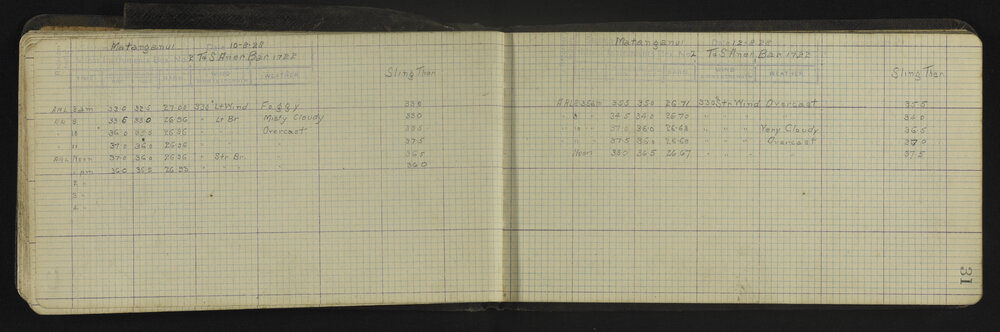 Matanganui Date 10-8-28
2 T&S Aner. Bar. 1722
TIME WIND WEATHER Sling Ther
AHL 8am 33.0 32.5 27.00 330° Lt Wind Foggy 33.0
9 33.5 33.0 26.96 " Lt Br Misty Cloudy 33.0
" 10 " 36.0 35.5 26.96 " " " Overcast 35.5
" 11 37.0 36.0 26.96 " " " " 37.5
AHL Noon 37.0 36.0 26.96 " Str Br. " 36.5
1 pm 36.0 35.5 26.95 " " " 36.0
2 "
3 "
4 "
Matanganui Date 12-8-28
2 T&S Aner. Bar 1722
WIND WEATHER Sling Ther
AHL 8am 35.5 35.0 26.71 330° Str Wind Overcast 35.5
" 9 " 34.5 34.0 26.70 " " " " 34.0
" 10 " 37.0 36.0 26.68 " " " Very Cloudy 36.5
" " 37.5 36.0 26.68 " " " Overcast 37.0
Noon 38.0 36.5 26.67 " " " " 37.5
31